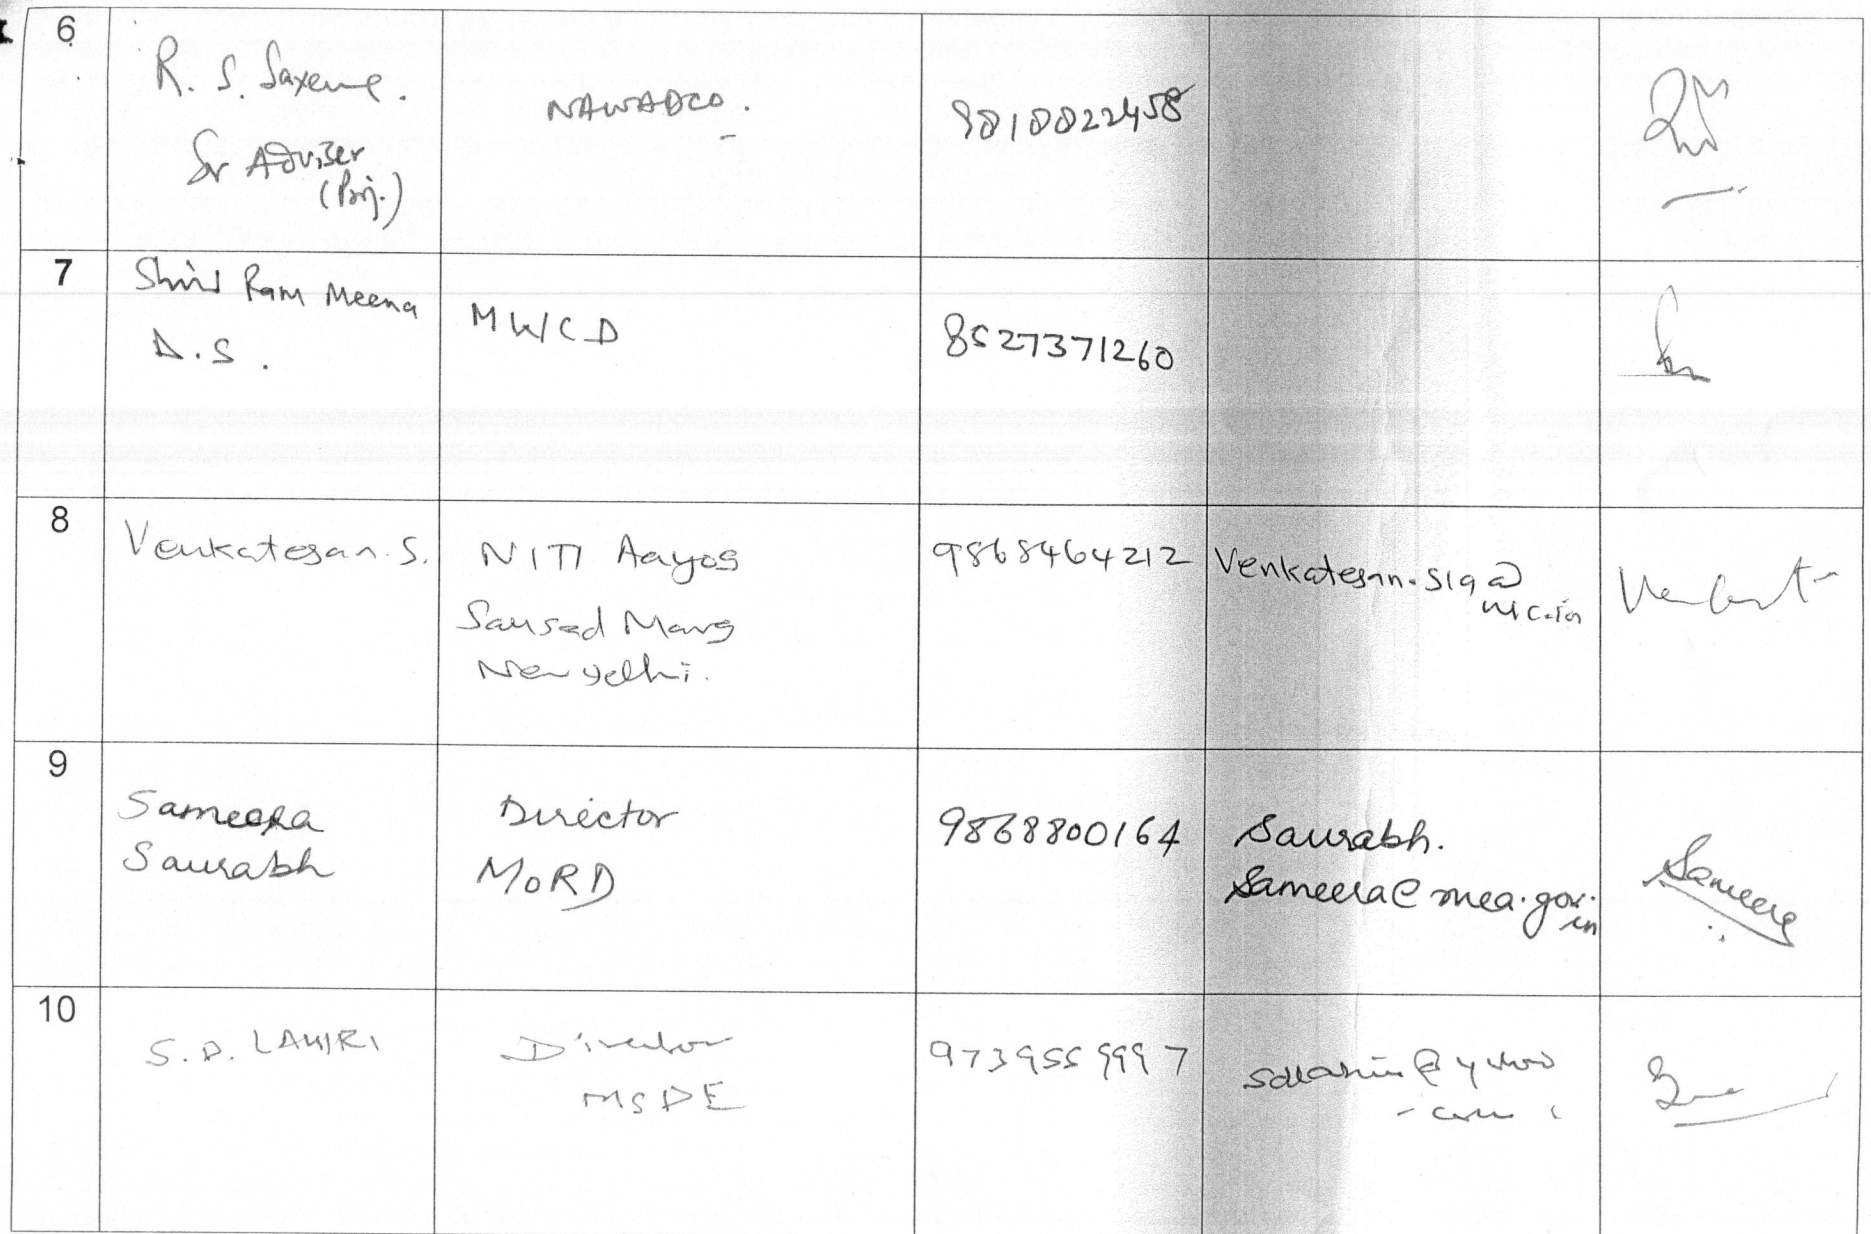 6
R. S. Saxena.
Sr Adviser
(Proj.)
NAWADCO.
9810022458
7
Ram Meena
D.S.
MWCD
8527371260
8
Venkatesan. S.
NITI Aayog
Sansad Marg
New Delhi.
9868464212
Venkatesan.S19@
nic.in
9
Sameera
Saurabh
Director
MoRD
9868800164
Saurabh.
Sameera@mea.gov.
in
Sameera
10
S.D. LAHIRI
Director
MSDE
9739559997